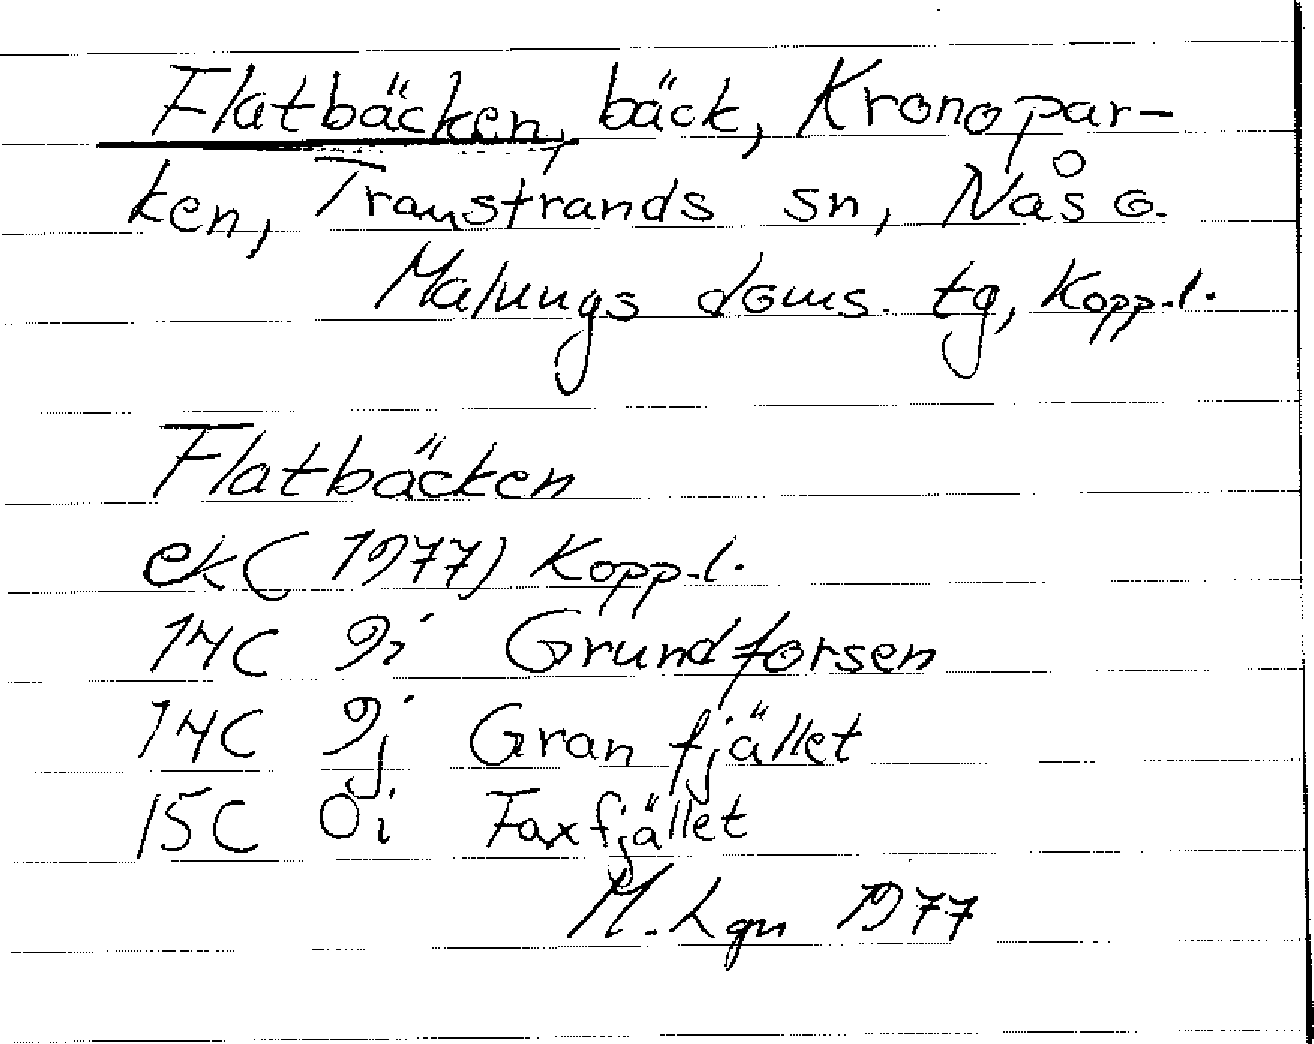 Flatbäcken, bäck, Kronopar-
ken, Transtrands sn, Nås o.
Malungs doms. tg, Kopp.l.
Flatbäcken
ek (1977) Kopp.l.
14C 9i Grundforsen
14C 9j Granfjället
15C 0i Faxfjället
M. Lgn 1977